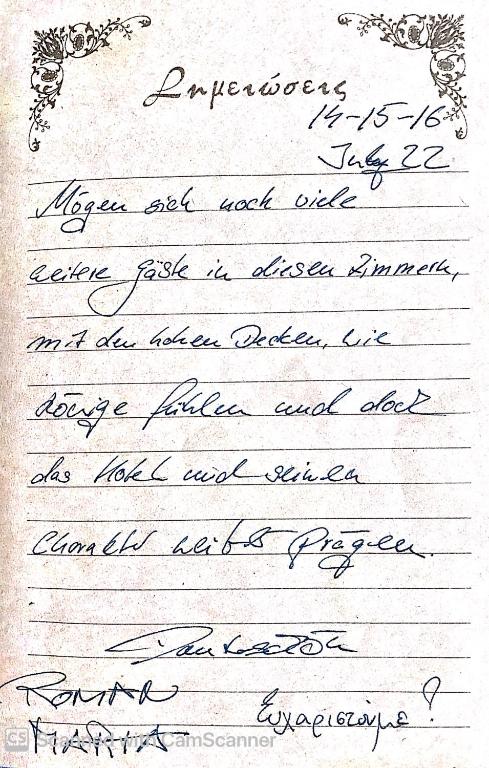 Σημειώσεις
14-15-16
July 22
Mögen sich noch viele
weitere Gäste in diesen Zimmern,
mit den hohen Decken, wie
Könige fühlen und doch
das Hotel mit seinen
Charakter selbst prägen.
Danke schön
ROMAN
Ευχαριστούμε!
CS Scanned with CamScanner